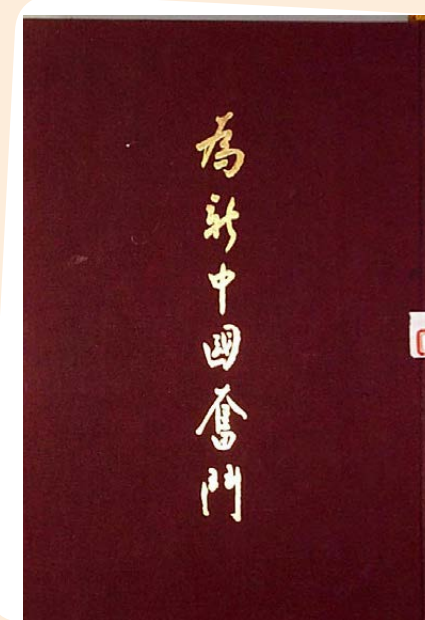 為新中國奮鬥